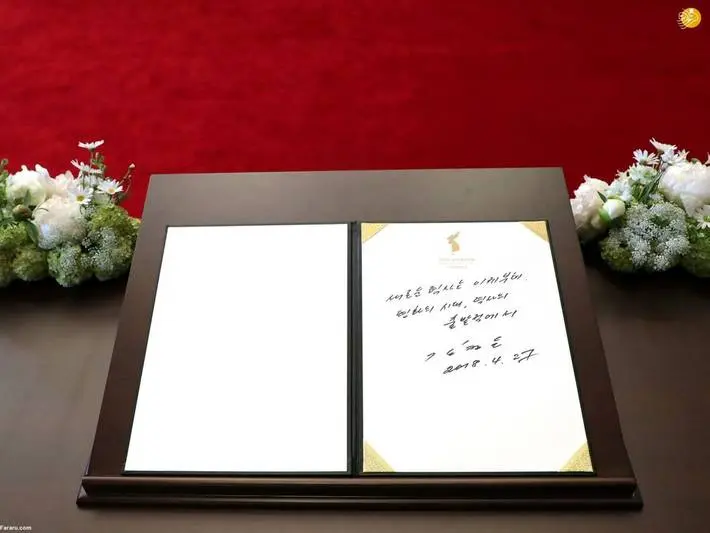 새로운 력사는 이제부터.
평화의 시대, 력사의
출발점에서
김정은
2018.4.27
Fararu.com